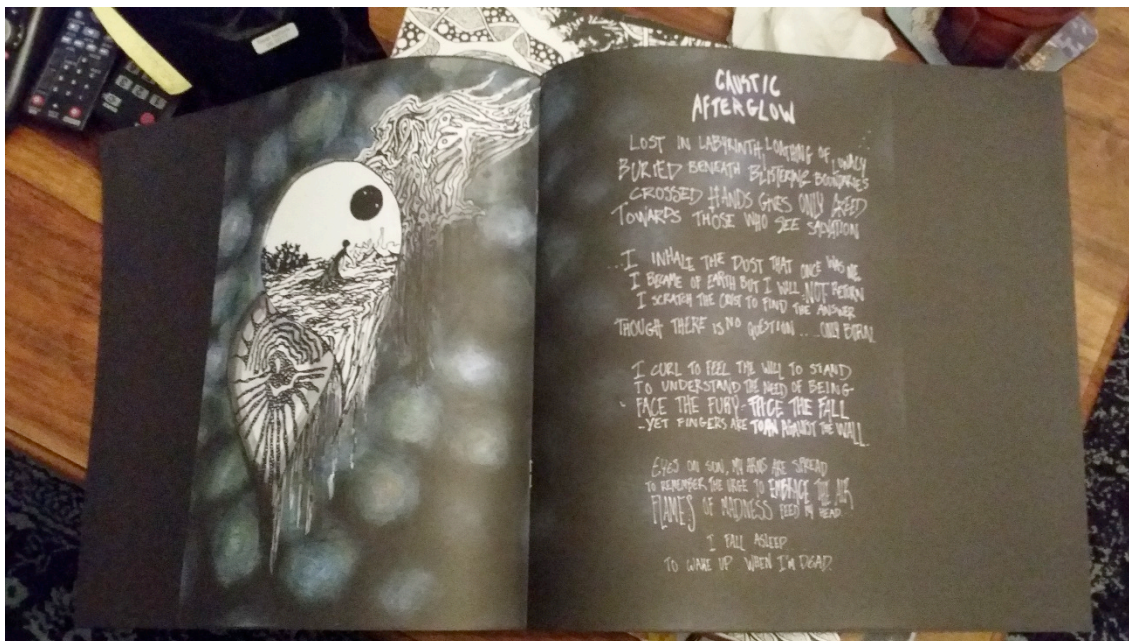 CAUSTIC
AFTERGLOW
LOST IN LABYRINTH, LOATHING OF LUNACY
BURIED BENEATH BLISTERING BOUNDARIES
CROSSED HANDS GIVES ONLY GREED
TOWARDS THOSE WHO SEE SALVATION
...I INHALE THE DUST THAT ONCE WAS ME
I BECAME OF EARTH BUT I WILL NOT RETURN
I SCRATCH THE CRUST TO FIND THE ANSWER
THOUGH THERE IS NO QUESTION... ONLY BURIAL
I CURL TO FEEL THE WILL TO STAND
TO UNDERSTAND THE NEED OF BEING-
FACE THE FURY- FACE THE FALL
-YET FINGERS ARE TORN AGAINST THE WALL
EYES ON SON, MY ARMS ARE SPREAD
TO REMEMBER THE URGE TO EMBRACE THE AIR
FLAMES OF MADNESS FEED MY HEAD
I FALL ASLEEP
TO WAKE UP WHEN I'M DEAD.